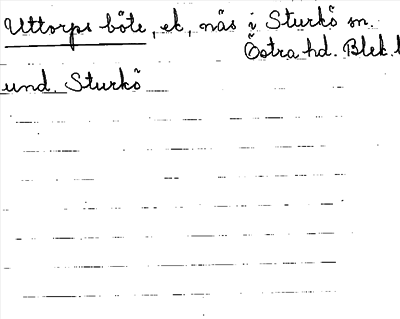 Uttorps böte, ek, näs i Sturkö sn.
Östra hd. Blek.l
und. Sturkö